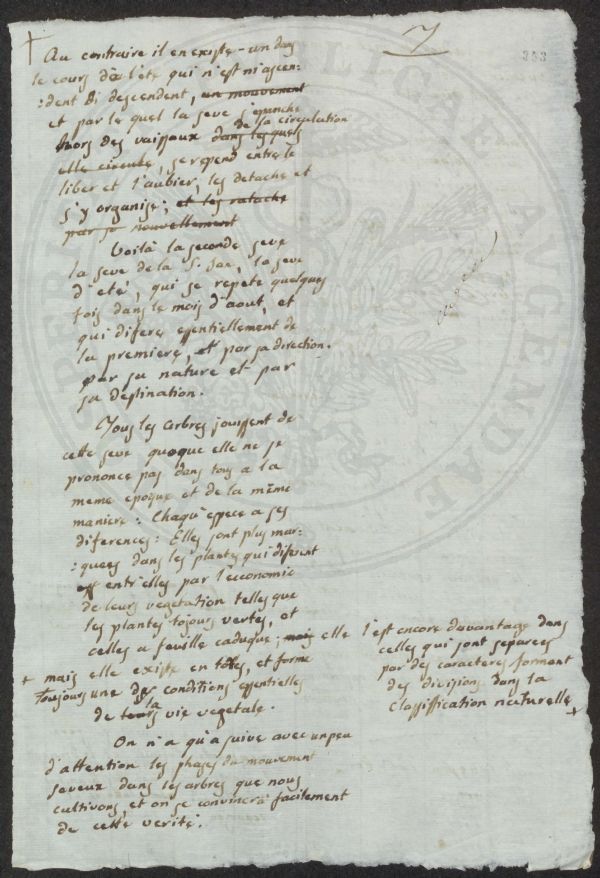 7
353
† Au contraire il en existe un dans
le cours de l'eté qui n'est ni ascen:
:dent ni descendent, un mouvement
et par le quel la seve s'epanche
hors des vaissaux dans lesquels de sa circulation
elle circule, se repend entre le
liber et l'aubier, les detache et
s'y organise; et les ratache
par nouvellement
Voilà la seconde seve
la seve de la S. Jae, la seve
d'eté, qui se repete quelques
fois dans le mois d'aout, et
qui difere essentiellement de
la premiere, et par sa direction.
par sa nature et par
sa destination.
Tous les arbres jouissent de
cette seve quoque elle ne se
prononce pas dans tous a la
meme epoque et de la même
maniere: Chaqu'espece a ses
diferences: Elles sont plus mar:
:quees dans les plantes qui diferent
entr'elles par l'economie
de leurs vegetation telles que
les plantes tojours vertes, et
celles a feuille caduque; mais elle
+ mais elle existe en toutes, et forme
Toujours une des conditions essentielles
de leurs la vie vegetale.
l'est encore davantage dans
celles qui sont separees
par des caracteres formant
des divisions dans la
Classification naturelle +
On n'a qu'a suive avec un peu
d'attention les phases du mouvement
seveux dans les arbres que nous
cultivons, et on se convincra facilement
de cette verité.
SPEI PUBLICAE AUGENDAE